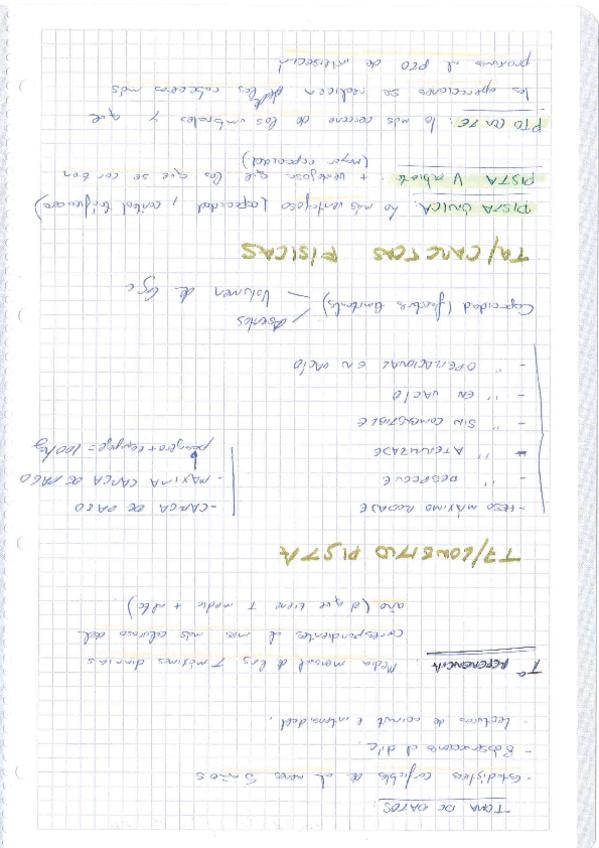 TOMA DE DATOS:
- estadísticas confiables de al menos 5 años
- 8 observaciones al día.
- Lecturas de con intensidad.
Tª REFERENCIA : Media mensual de las T máximas diarias
correspondientes al mes más caluroso del
año (el que tiene T media + alta).
T7/LONGITUD PISTA
- PESO MÁXIMO RODAJE
- " DESPEGUE
- " ATERRIZAJE
- " SIN COMBUSTIBLE
- " EN VACÍO
- " OPERACIONAL EN VACÍO
- CARGA DE PAGO
- MAXIMA CARGA DE PAGO
pasajero + equipaje = 100 kg
Capacidad (factores limitante)
Asientos
Volumen de
T8/CARCTCAS FÍSICAS
PISTA ÚNICA: La más ventajosa (capacidad y control tráfico aéreo)
PISTA V abierta : + ventajosa que las que se cortan
(mayor capacidad)
PTO CORTE : lo más cercano de los umbrales y que
las operaciones se realicen desde las cabeceras más
próximas al PTO de intersección